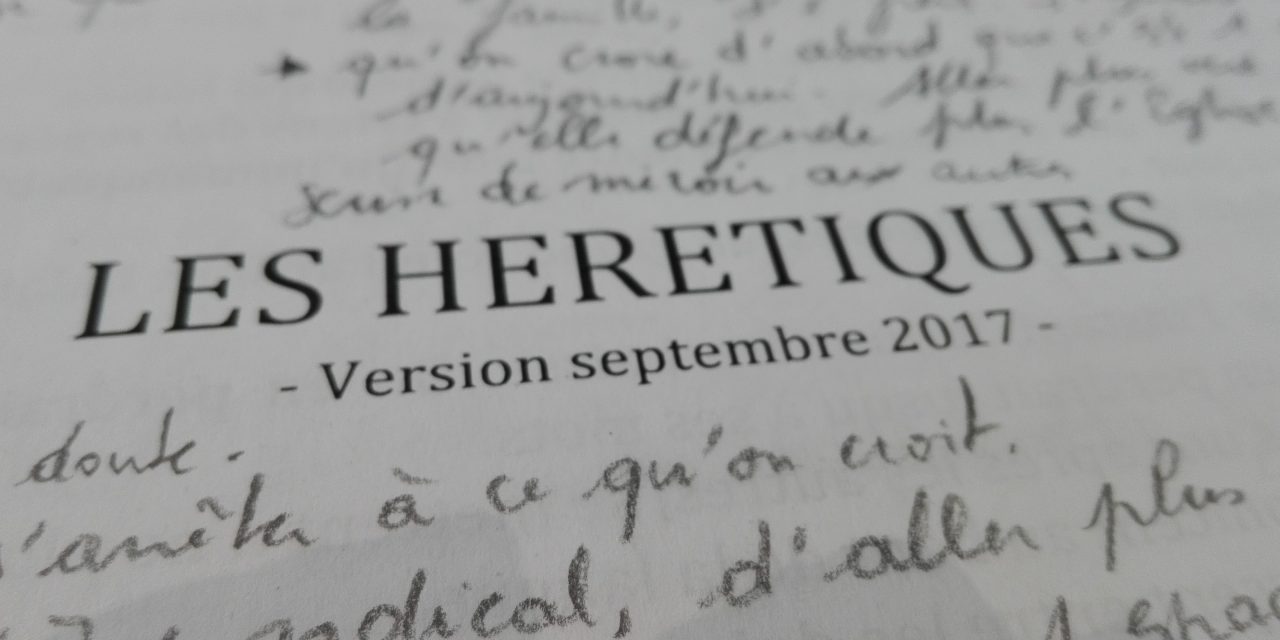 la famille,
qu'on croie d'abord que c'est
d'aujourd'hui. Aller plus
qu'elle défende plus l'Eglise
servir de miroir aux autres
LES HERETIQUES
- Version septembre 2017 -
doute.
s'arrêter à ce qu'on croit.
radical, d'aller plus